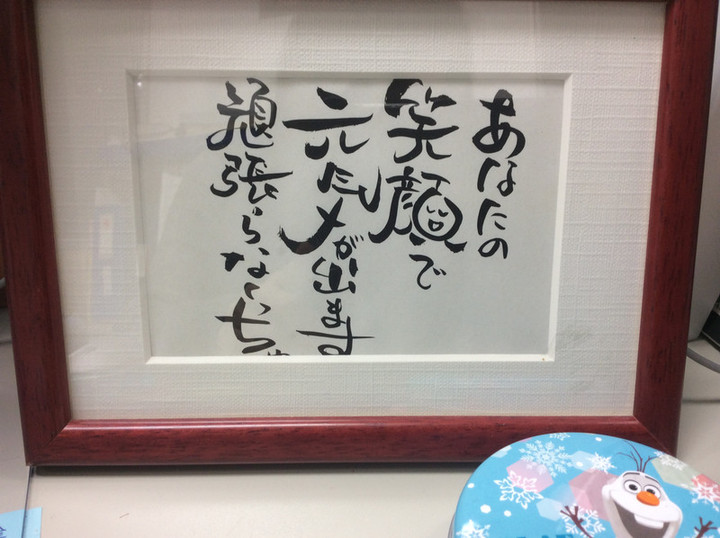 あなたの
笑顔で
元気が出ます
頑張らなくちゃ